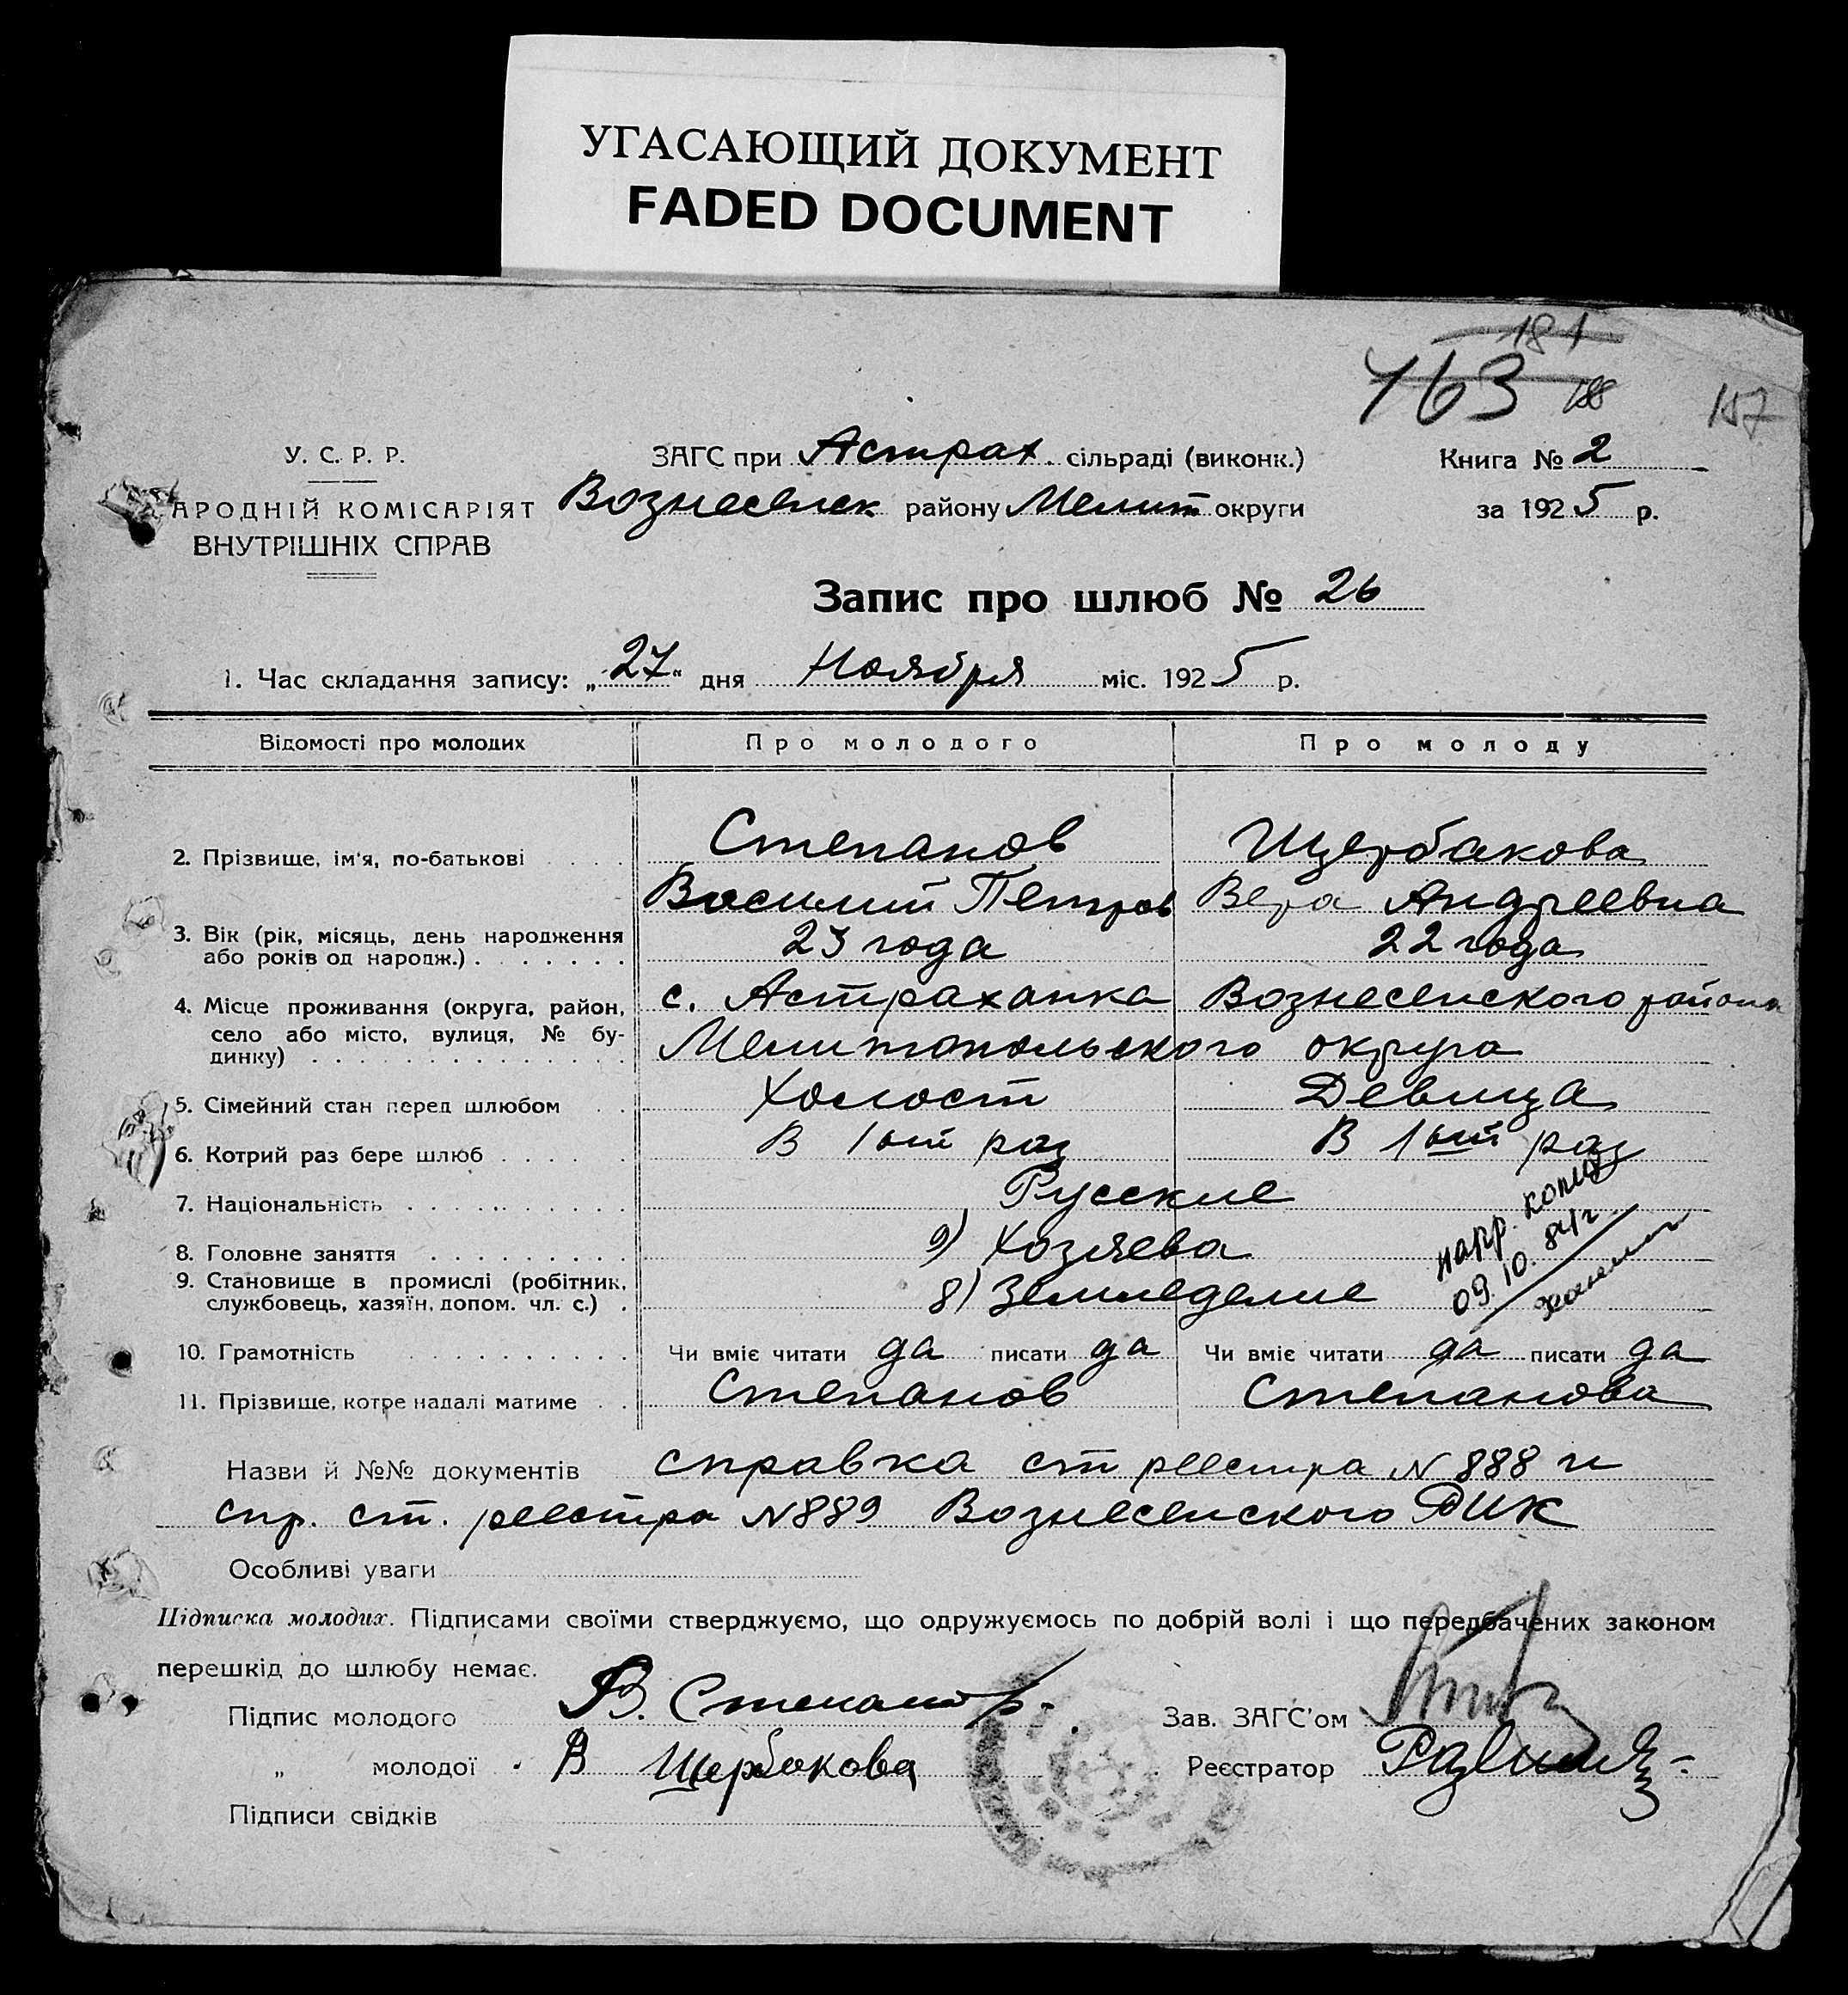 УГАСАЮЩИЙ ДОКУМЕНТ
FADED DOCUMENT
181
163 188 157
У. С. Р. Р.
АРОДНІЙ КОМІСАРІЯТ
ВНУТРІШНІХ СПРАВ
ЗАГС при Астрах. сільраді (виконк.)
Вознесенск району Мелит округи
Книга № 2
за 1925 р.
Запис про шлюб № 26
1. Час складання запису: „27“ дня Ноября міс. 1925 р.
Відомості про молодих Про молодого Про молоду
2. Прізвище, ім'я, по-батькові . . . . Степанов Щербакова
Василий Петров Вера Андреевна
3. Вік (рік, місяць, день народження 23 года 22 года
або років од народж.) . . . . . . .
4. Місце проживання (округа, район, с. Астраханка Вознесенского района
село або місто, вулиця, № бу- Мелитопольского округа
динку) . . . . . . . . . . . . .
5. Сімейний стан перед шлюбом . . Холост Девица
6. Котрий раз бере шлюб . . . . . В 1ый раз В 1ый раз
7. Національність . . . . . . . . . Русские
8. Головне заняття . . . . . . . . . 9) Хозяева
9. Становище в промислі (робітник, 8) Земледелие
службовець, хазяїн, допом. чл. с.) .
напр. копия
09 10. 84г
10. Грамотність . . . . . . . . . Чи вміє читати да писати да Чи вміє читати да писати да
11. Прізвище, котре надалі матиме . . Степанов Степанова
Назви й №№ документів справка ст реестра N 888 и
спр. ст. реестра N889 Вознесенского РИК
Особливі уваги
Підписка молодих. Підписами своїми стверджуємо, що одружуємось по добрій волі і що передбачених законом
перешкід до шлюбу немає.
Підпис молодого В. Степанов. Зав. ЗАГС'ом
„ молодої В Щербакова Реєстратор
Підписи свідків